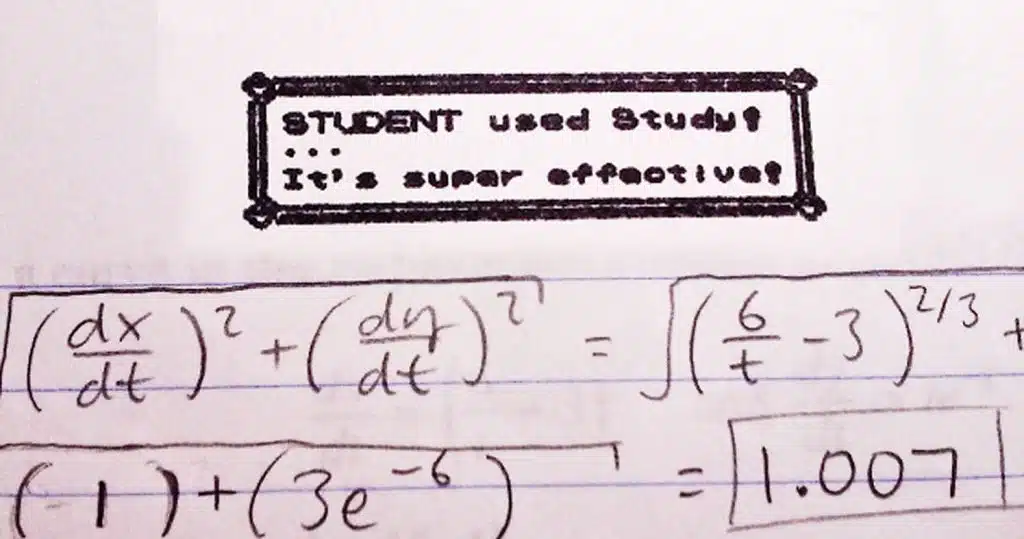 STUDENT used Study!
...
It's super effective!
√(dx/dt)² + (dy/dt)² = √(6/t - 3)^2/3 +
(-1) + (3e^-6) = 1.007